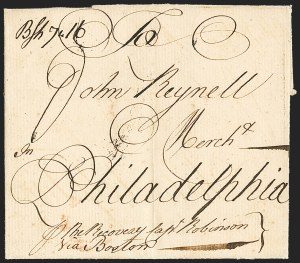 To
John Reynell
Merch.t
In
Philadelphia
Recovery Cap.t Robinson
Via Boston